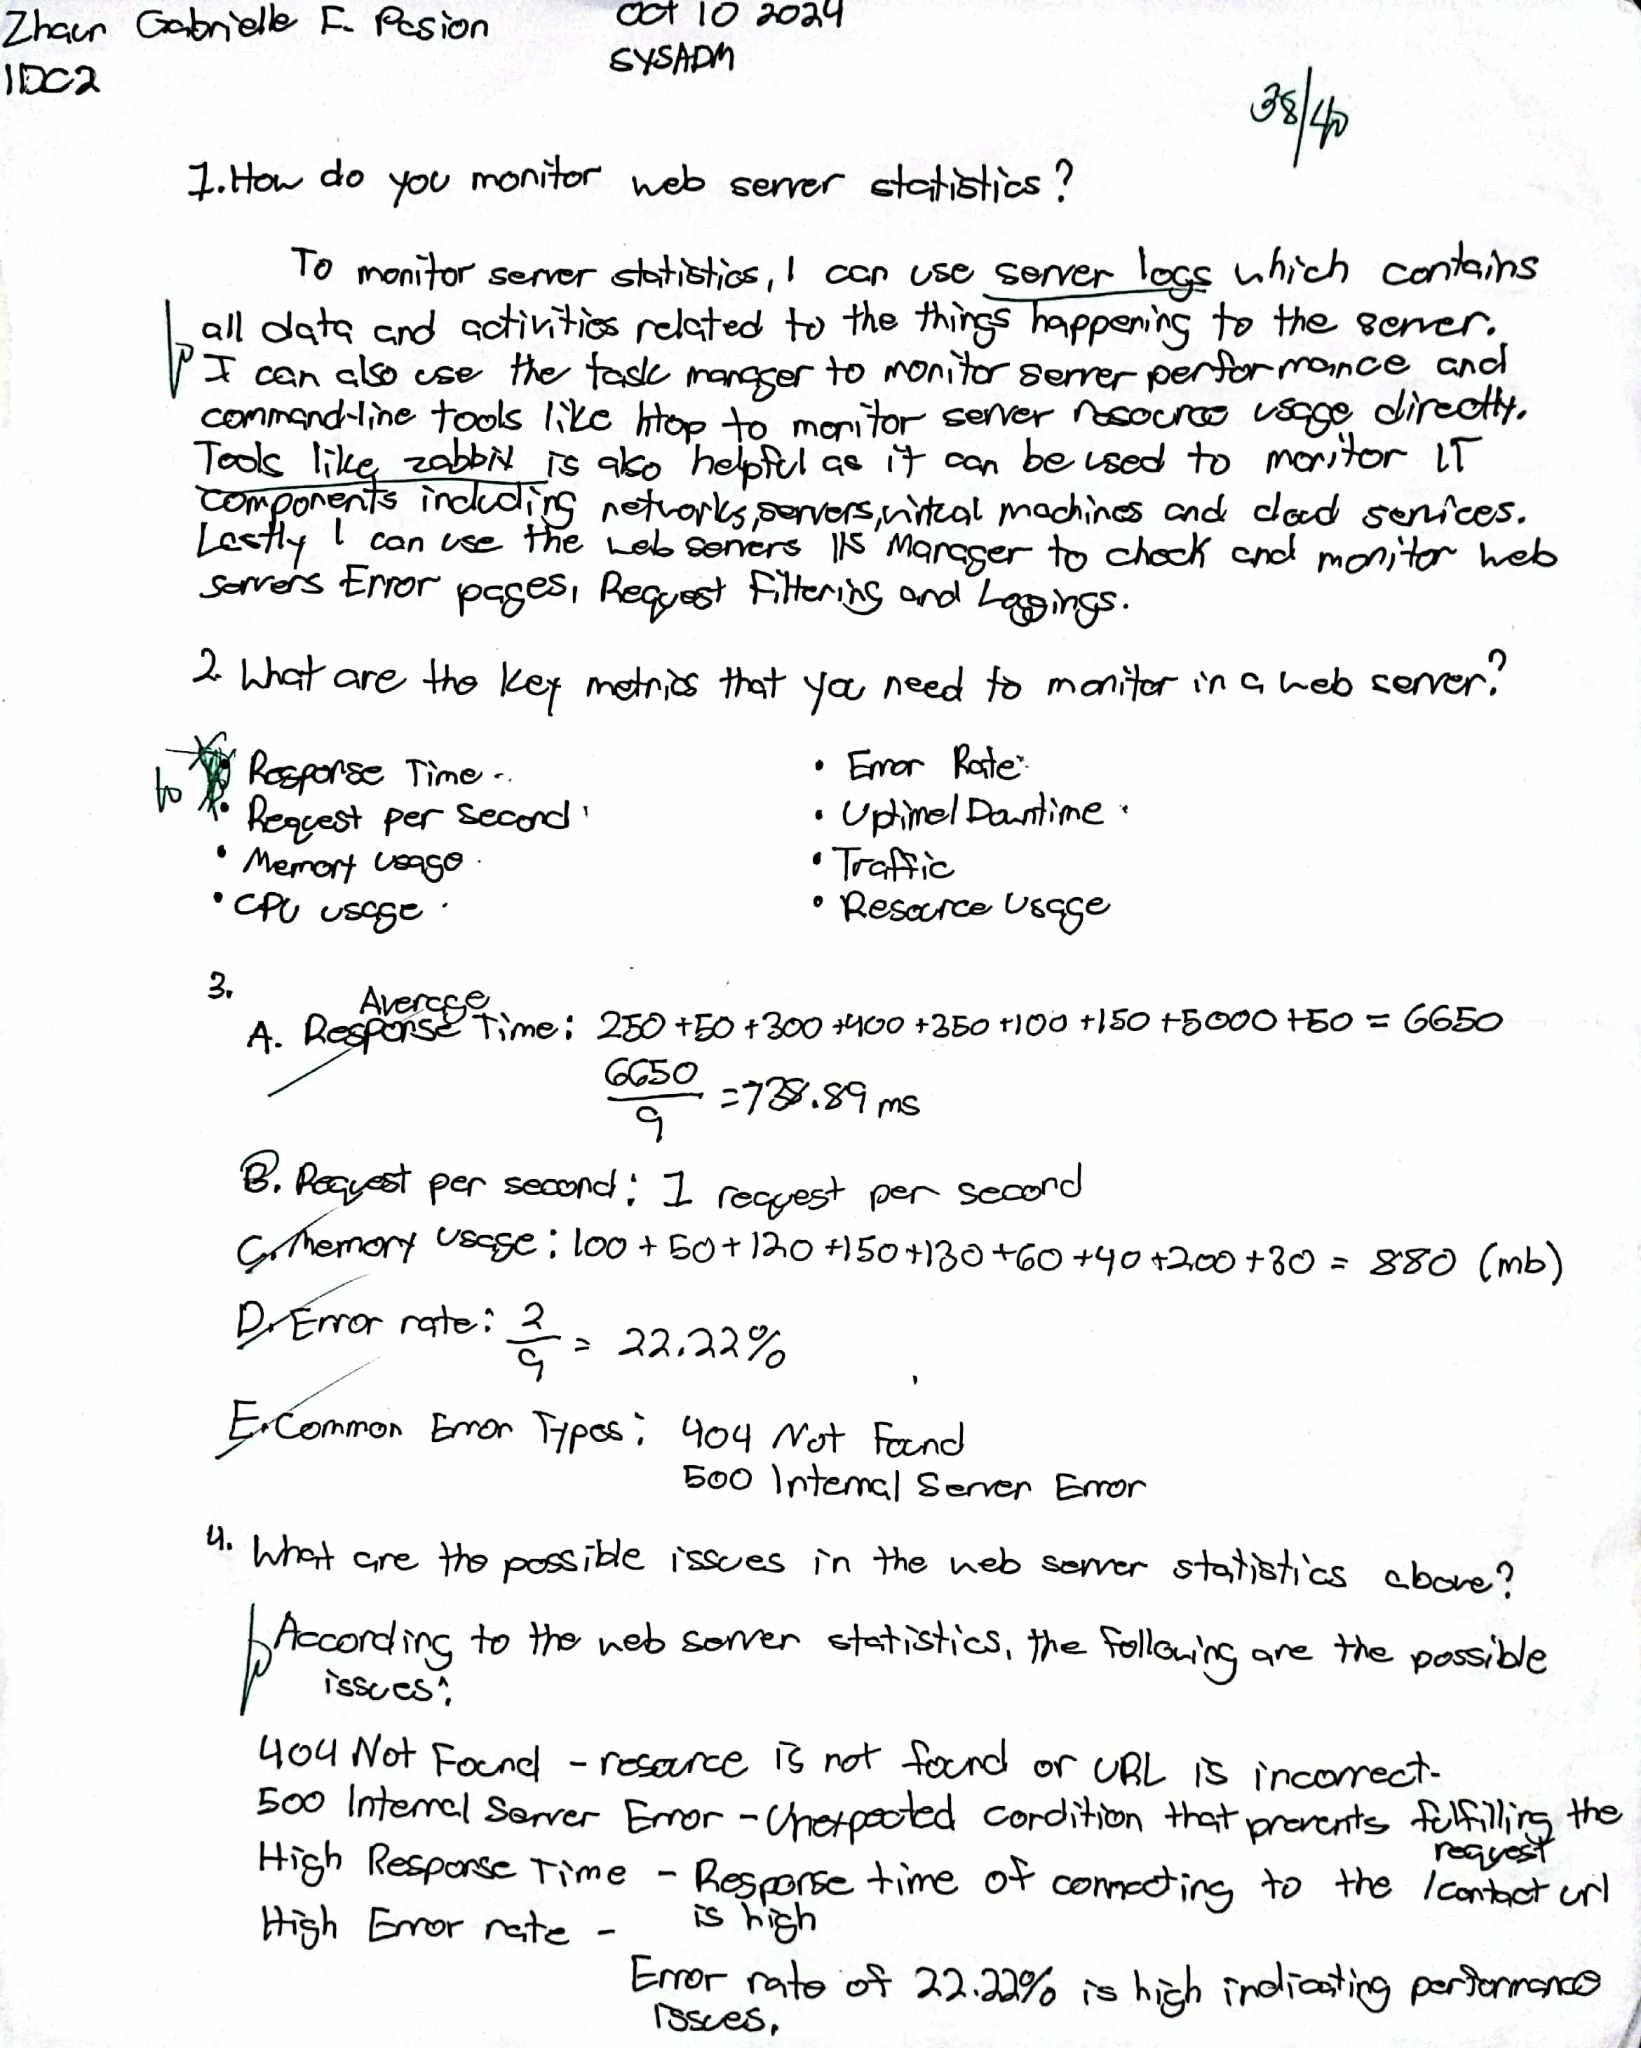 Zhaun Gabrielle F. Pasion
Oct 10 2024
1DC2
SYSADM
38/40
1. How do you monitor web server statistics?
To monitor server statistics, I can use server logs which contains
all data and activities related to the things happening to the server.
I can also use the task manager to monitor server performance and
command-line tools like htop to monitor server resource usage directly.
Tools like zabbix is also helpful as it can be used to monitor IT
components including networks, servers, virtual machines and cloud services.
Lastly I can use the web servers IIS Manager to check and monitor web
servers Error pages, Request Filtering and Loggings.
2. What are the key metrics that you need to monitor in a web server?
10
• Response Time
• Request per second
• Memory usage
• CPU usage
• Error Rate
• Uptime/Downtime
• Traffic
• Resource Usage
3.
A. Average Response Time: 250 + 50 + 300 + 400 + 350 + 100 + 150 + 5000 + 50 = 6650
6650
9
= 738.89 ms
B. Request per second: 1 request per second
C. Memory usage: 100 + 50 + 120 + 150 + 130 + 60 + 40 + 200 + 30 = 880 (mb)
D. Error rate: 2/9 = 22.22%
E. Common Error Types: 404 Not Found
500 Internal Server Error
4. What are the possible issues in the web server statistics above?
According to the web server statistics, the following are the possible
issues:
404 Not Found - resource is not found or URL is incorrect.
500 Internal Server Error - Unexpected condition that prevents fulfilling the
request
High Response Time - Response time of connecting to the /contact url
is high
High Error rate -
Error rate of 22.22% is high indicating performance
issues.